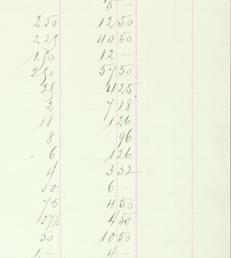 5 —
2.50 12 50
2.25 40 50
1.50 12 —
2.50 57 50
25 4 25
2 7 18
18 1 26
8 96
6 1 26
4 3 32
10 6 —
75 4 50
37½ 4 50
50 10 50
1.— 4 —